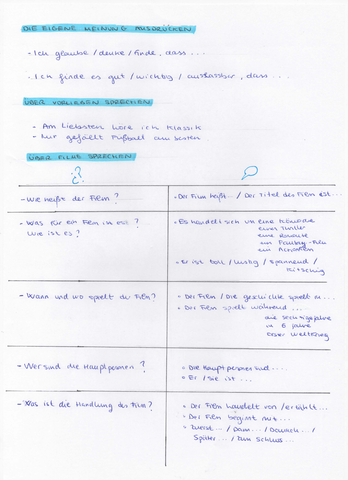 DIE EIGENE MEINUNG AUSDRÜCKEN
- Ich glaube / denke / finde, dass ...
- Ich finde es gut / wichtig / dass ...
ÜBER VORLIEBEN SPRECHEN
- Am Liebsten höre ich Klassik
- Mir gefällt Fußball am besten
ÜBER FILME SPRECHEN
- Wie heißt der Film ?
- Der Film heißt... / Der Titel des Films ist ...
- Was für ein Film ist es ?
Wie ist es ?
- Es handelt sich um eine Komödie
einen Thriller
eine Romanze
ein Fantasy-Film
ein Actionfilm
- Er ist toll / lustig / spannend /
kitschig
- Wann und wo spielt der Film ?
- Der Film / Die Geschichte spielt in ...
- Der Film spielt während ...
die sechzigerjahre
in 5 Jahre
Erster Weltkrieg
- Wer sind die Hauptpersonen ?
- Die Hauptpersonen sind ...
- Er / Sie ist ...
- Was ist die Handlung des Films ?
- Der Film handelt von / erzählt ...
- Der Film beginnt mit ...
- Zuerst ... / Dann ... / Danach ... /
Später ... / Zum Schluss ...